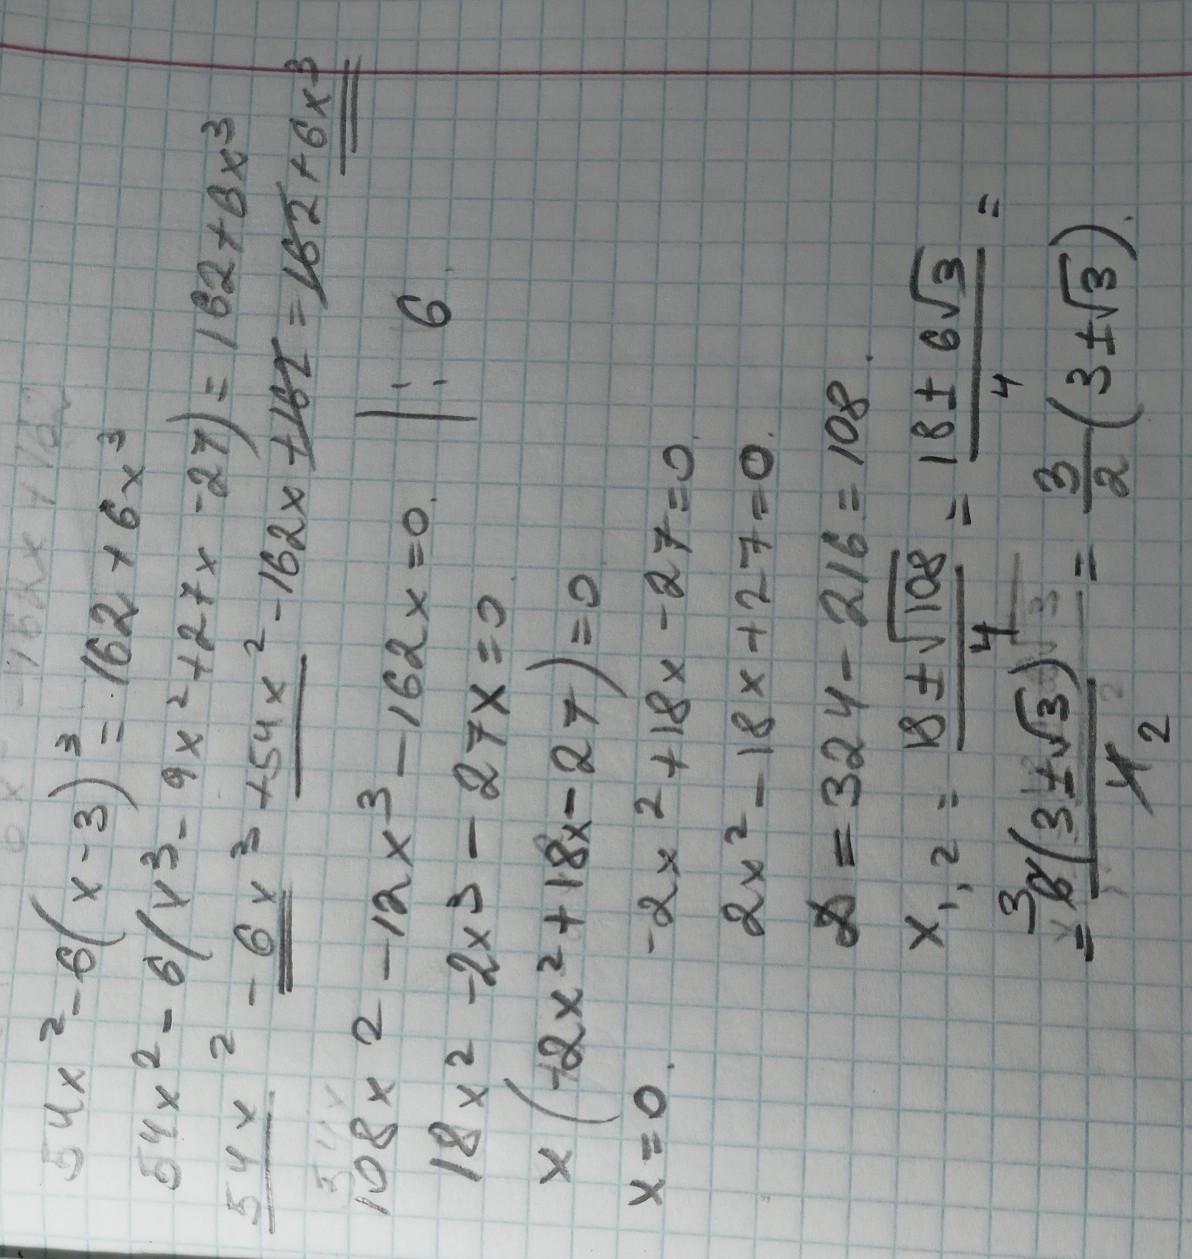 54x² - 6(x-3)³ = 162 + 6x³
54x² - 6(x³ - 9x² + 27x - 27) = 162 + 6x³
54x² - 6x³ + 54x² - 162x + 162 = 162 + 6x³
108x² - 12x³ - 162x = 0. | : 6
18x² - 2x³ - 27x = 0
x(-2x² + 18x - 27) = 0
x = 0. -2x² + 18x - 27 = 0.
2x² - 18x + 27 = 0.
D = 324 - 216 = 108.
x₁,₂ = (18 ± √108)/4 = (18 ± 6√3)/4 =
= 6(3 ± √3)/4 = 3/2 (3 ± √3).